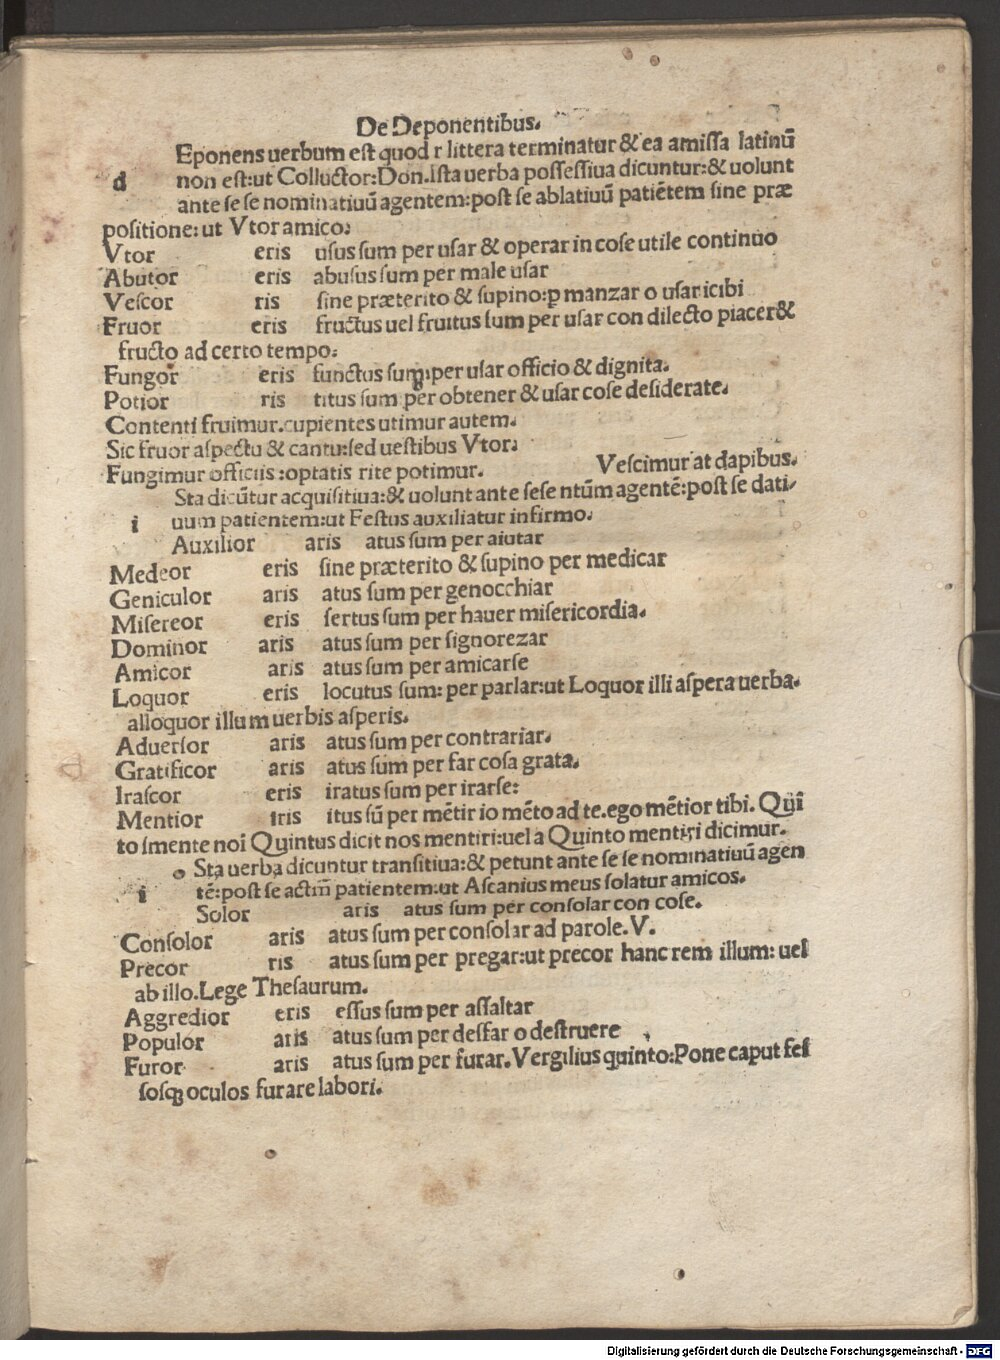 De Deponentibus.
Eponens uerbum est quod r littera terminatur & ea amissa latinũ
d non est:ut Colluctor:Don.Ista uerba possessiua dicuntur:& uolunt
ante se se nominatiuũ agentem:post se ablatiuũ patiẽtem sine præ
positione:ut Vtor amico.
Vtor eris usus sum per usar & operar in cose utile continuo
Abutor eris abusus sum per male usar
Vescor ris sine præterito & supino:p manzar o usar i cibi
Fruor eris fructus uel fruitus sum per usar con dilecto piacer &
fructo ad certo tempo.
Fungor eris functus sum:per usar officio & dignita.
Potior ris titus sum per obtener & usar cose desiderate.
Contenti fruimur.cupientes utimur autem.
Sic fruor aspectu & cantu:sed uestibus Vtor.
Fungimur officiis:optatis rite potimur. Vescimur at dapibus.
Sta dicũtur acquisitiua:& uolunt ante sese ntũm agentẽ:post se dati
i uum patientem:ut Festus auxiliatur infirmo.
Auxilior aris atus sum per aiutar
Medeor eris sine præterito & supino per medicar
Geniculor aris atus sum per genocchiar
Misereor eris sertus sum per hauer misericordia.
Dominor aris atus sum per signorezar
Amicor aris atus sum per amicarse
Loquor eris locutus sum: per parlar:ut Loquor illi aspera uerba.
alloquor illum uerbis asperis.
Aduersor aris atus sum per contrariar.
Gratificor aris atus sum per far cosa grata.
Irascor eris iratus sum per irarse:
Mentior iris itus sũ per mẽtir io mẽto ad te.ego mẽtior tibi. Quĩ
to smente noi Quintus dicit nos mentiri:uel a Quinto mentiri dicimur.
Sta uerba dicuntur transitiua:& petunt ante se se nominatiuũ agen
i tẽ:post se actm̃ patientem:ut Ascanius meus solatur amicos.
Solor aris atus sum per consolar con cose.
Consolor aris atus sum per consolar ad parole.V.
Precor ris atus sum per pregar:ut precor hanc rem illum: uel
ab illo.Lege Thesaurum.
Aggredior eris essus sum per assaltar
Populor aris atus sum per desfar o destruere
Furor aris atus sum per furar.Vergilius quinto:Pone caput fes
sosqꝫ oculos furare labori.
Digitalisierung gefördert durch die Deutsche Forschungsgemeinschaft - DFG